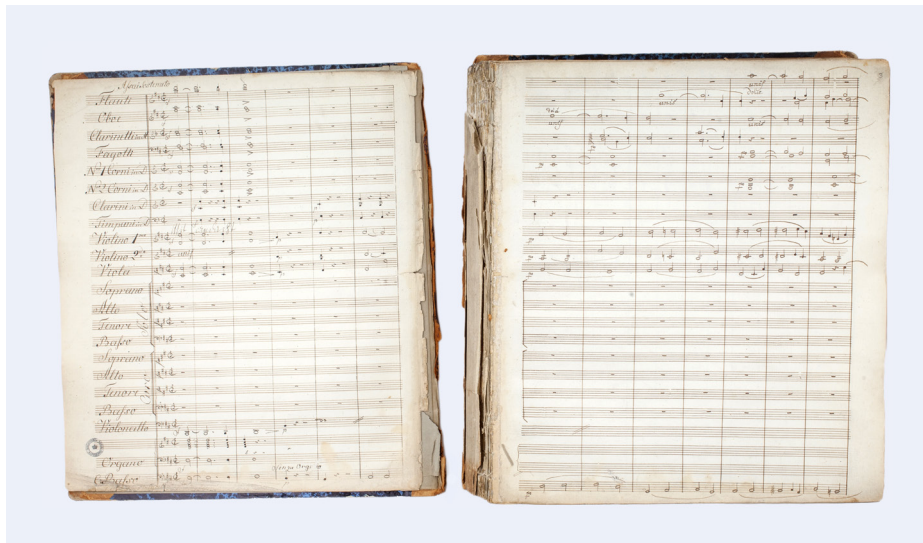 Assai sostenuto
Flauti
Oboe
Clarinetti in A
Fagotti
No 1 Corni in D
No 2 Corni in D
Clarini in D
Timpani in D
Violino 1mo
Violino 2do
unis
Viola
Soprano
Alto
Tenore
Basso
Solo
Soprano
Alto
Tenore
Basso
Violoncello
Organo
C. Basso
senza Org
unis
dolce
unis
unis